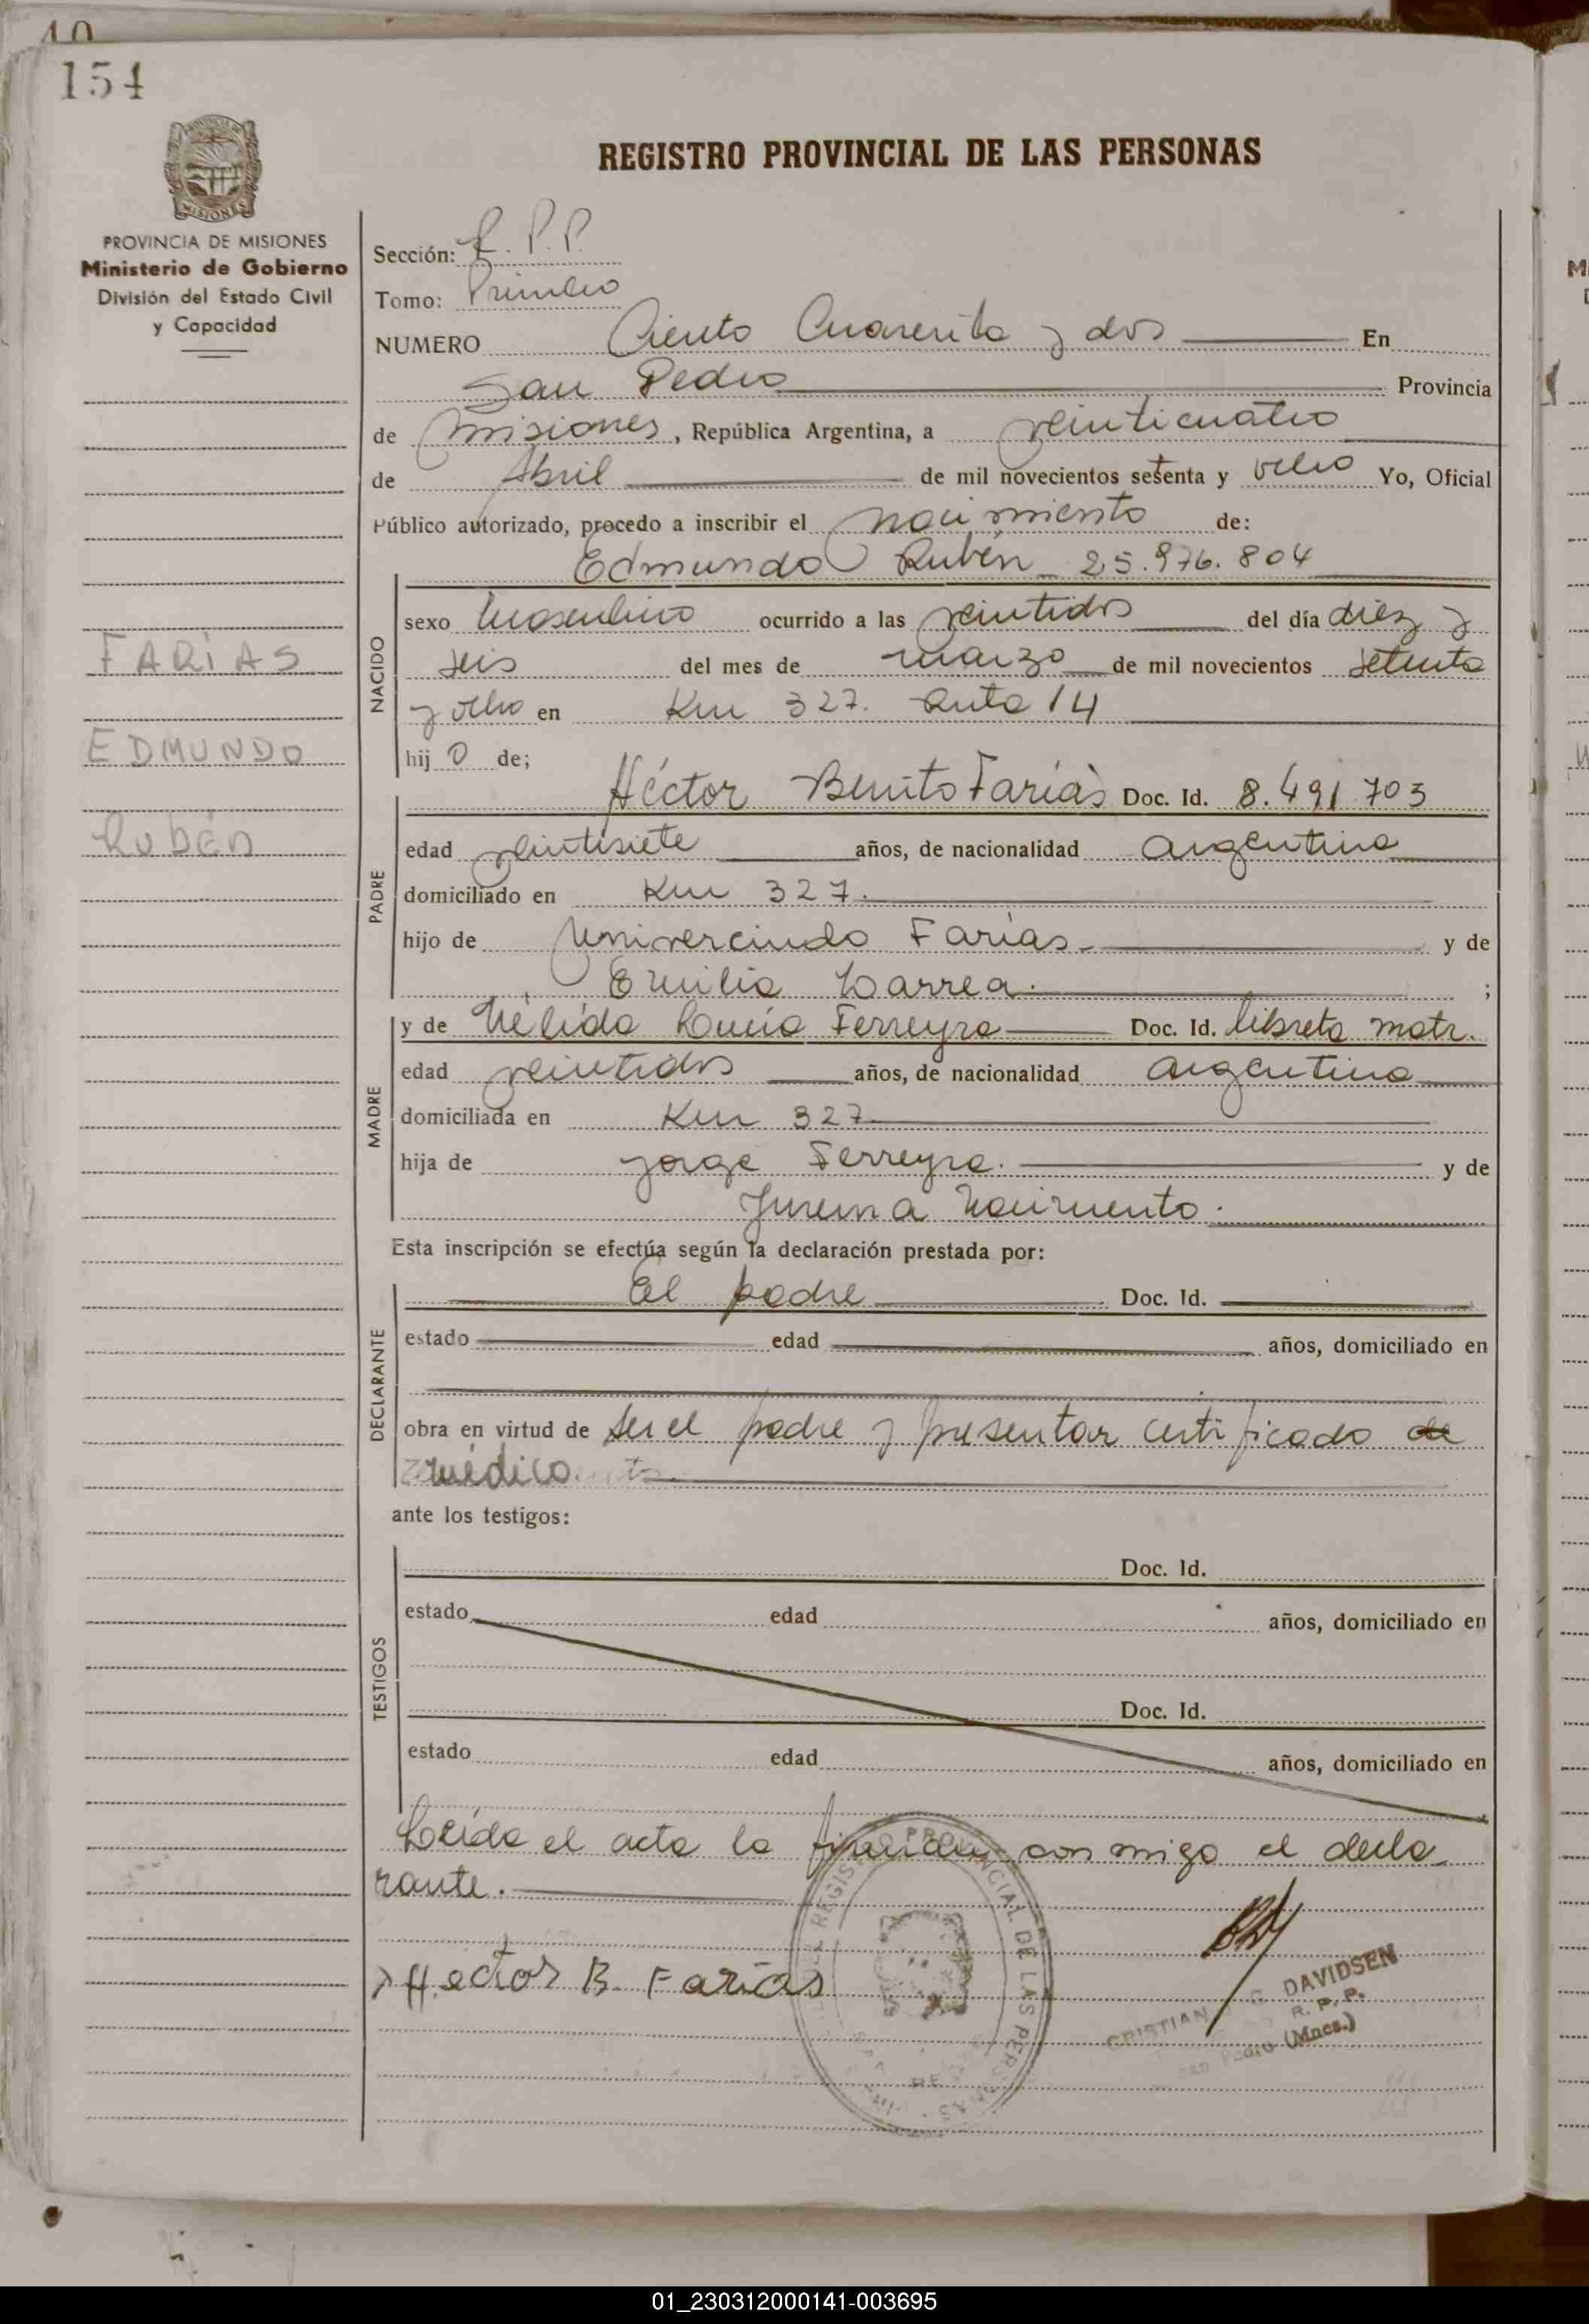 10
154
PROVINCIA DE MISIONES
MISIONES
PROVINCIA DE MISIONES
Ministerio de Gobierno
División del Estado Civil
y Capacidad
FARÍAS
EDMUNDO
Rubén
REGISTRO PROVINCIAL DE LAS PERSONAS
Sección: R. P.P.
Tomo: Primero
NUMERO Ciento Cuarenta y dos En
San Pedro Provincia
de Misiones, República Argentina, a veinticuatro
de Abril de mil novecientos setenta y ocho Yo, Oficial
Público autorizado, procedo a inscribir el nacimiento de:
Edmundo Rubén 25.976.804
NACIDO
sexo Masculino ocurrido a las veintidos del día diez y
seis del mes de marzo de mil novecientos setenta
y ocho en Km 327. Ruta 14
hij o de;
PADRE
Héctor Benito Farías Doc. Id. 8.491.703
edad veintisiete años, de nacionalidad argentina
domiciliado en Km 327.
hijo de Univercindo Farías. y de
Emilia Larrea. ;
MADRE
y de Nélida Lucía Ferreyra Doc. Id. libreta matr.
edad veintidos años, de nacionalidad argentina
domiciliada en Km 327
hija de Jorge Ferreyra. y de
Jurema Nacimento.
Esta inscripción se efectúa según la declaración prestada por:
DECLARANTE
El padre Doc. Id.
estado edad años, domiciliado en
obra en virtud de ser el padre y presentar certificado de
médico.
ante los testigos:
TESTIGOS
Doc. Id.
estado edad años, domiciliado en
Doc. Id.
estado edad años, domiciliado en
Leída el acta la firman conmigo el decla
rante.
Hector B. Farías
REGISTRO PROVINCIAL DE LAS PERSONAS
CRISTIAN G. DAVIDSEN
R. P. P.
San Pedro (Mnes.)
01_230312000141-003695